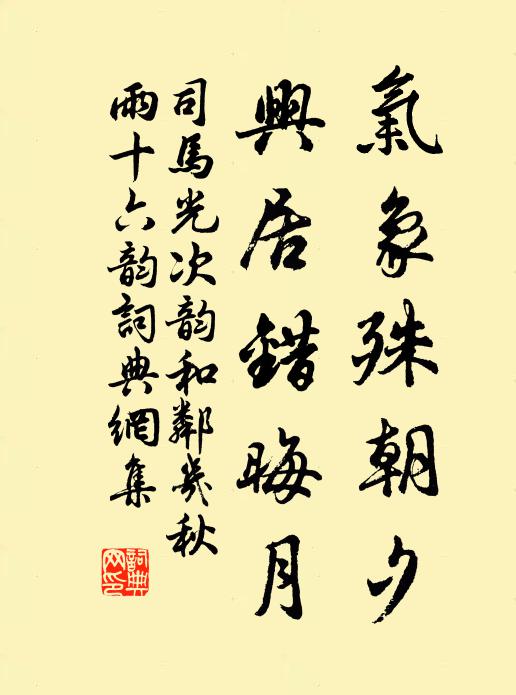 氣象殊朝夕
興居錯晦月
司馬光次韵和鄰幾秋
雨十六韵詞典網集
詞典
网印